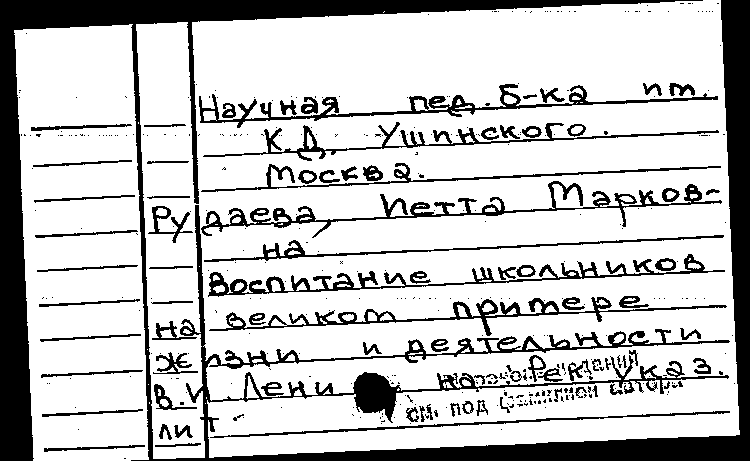 Научная пед. Б-ка им.
К.Д. Ушинского.
Москва.
Рудаева, Иетта Марков-
на
Воспитание школьников
на великом примере
жизни и деятельности
В.И. Лени на Рек Указ.
см. под фамилией автора
лит